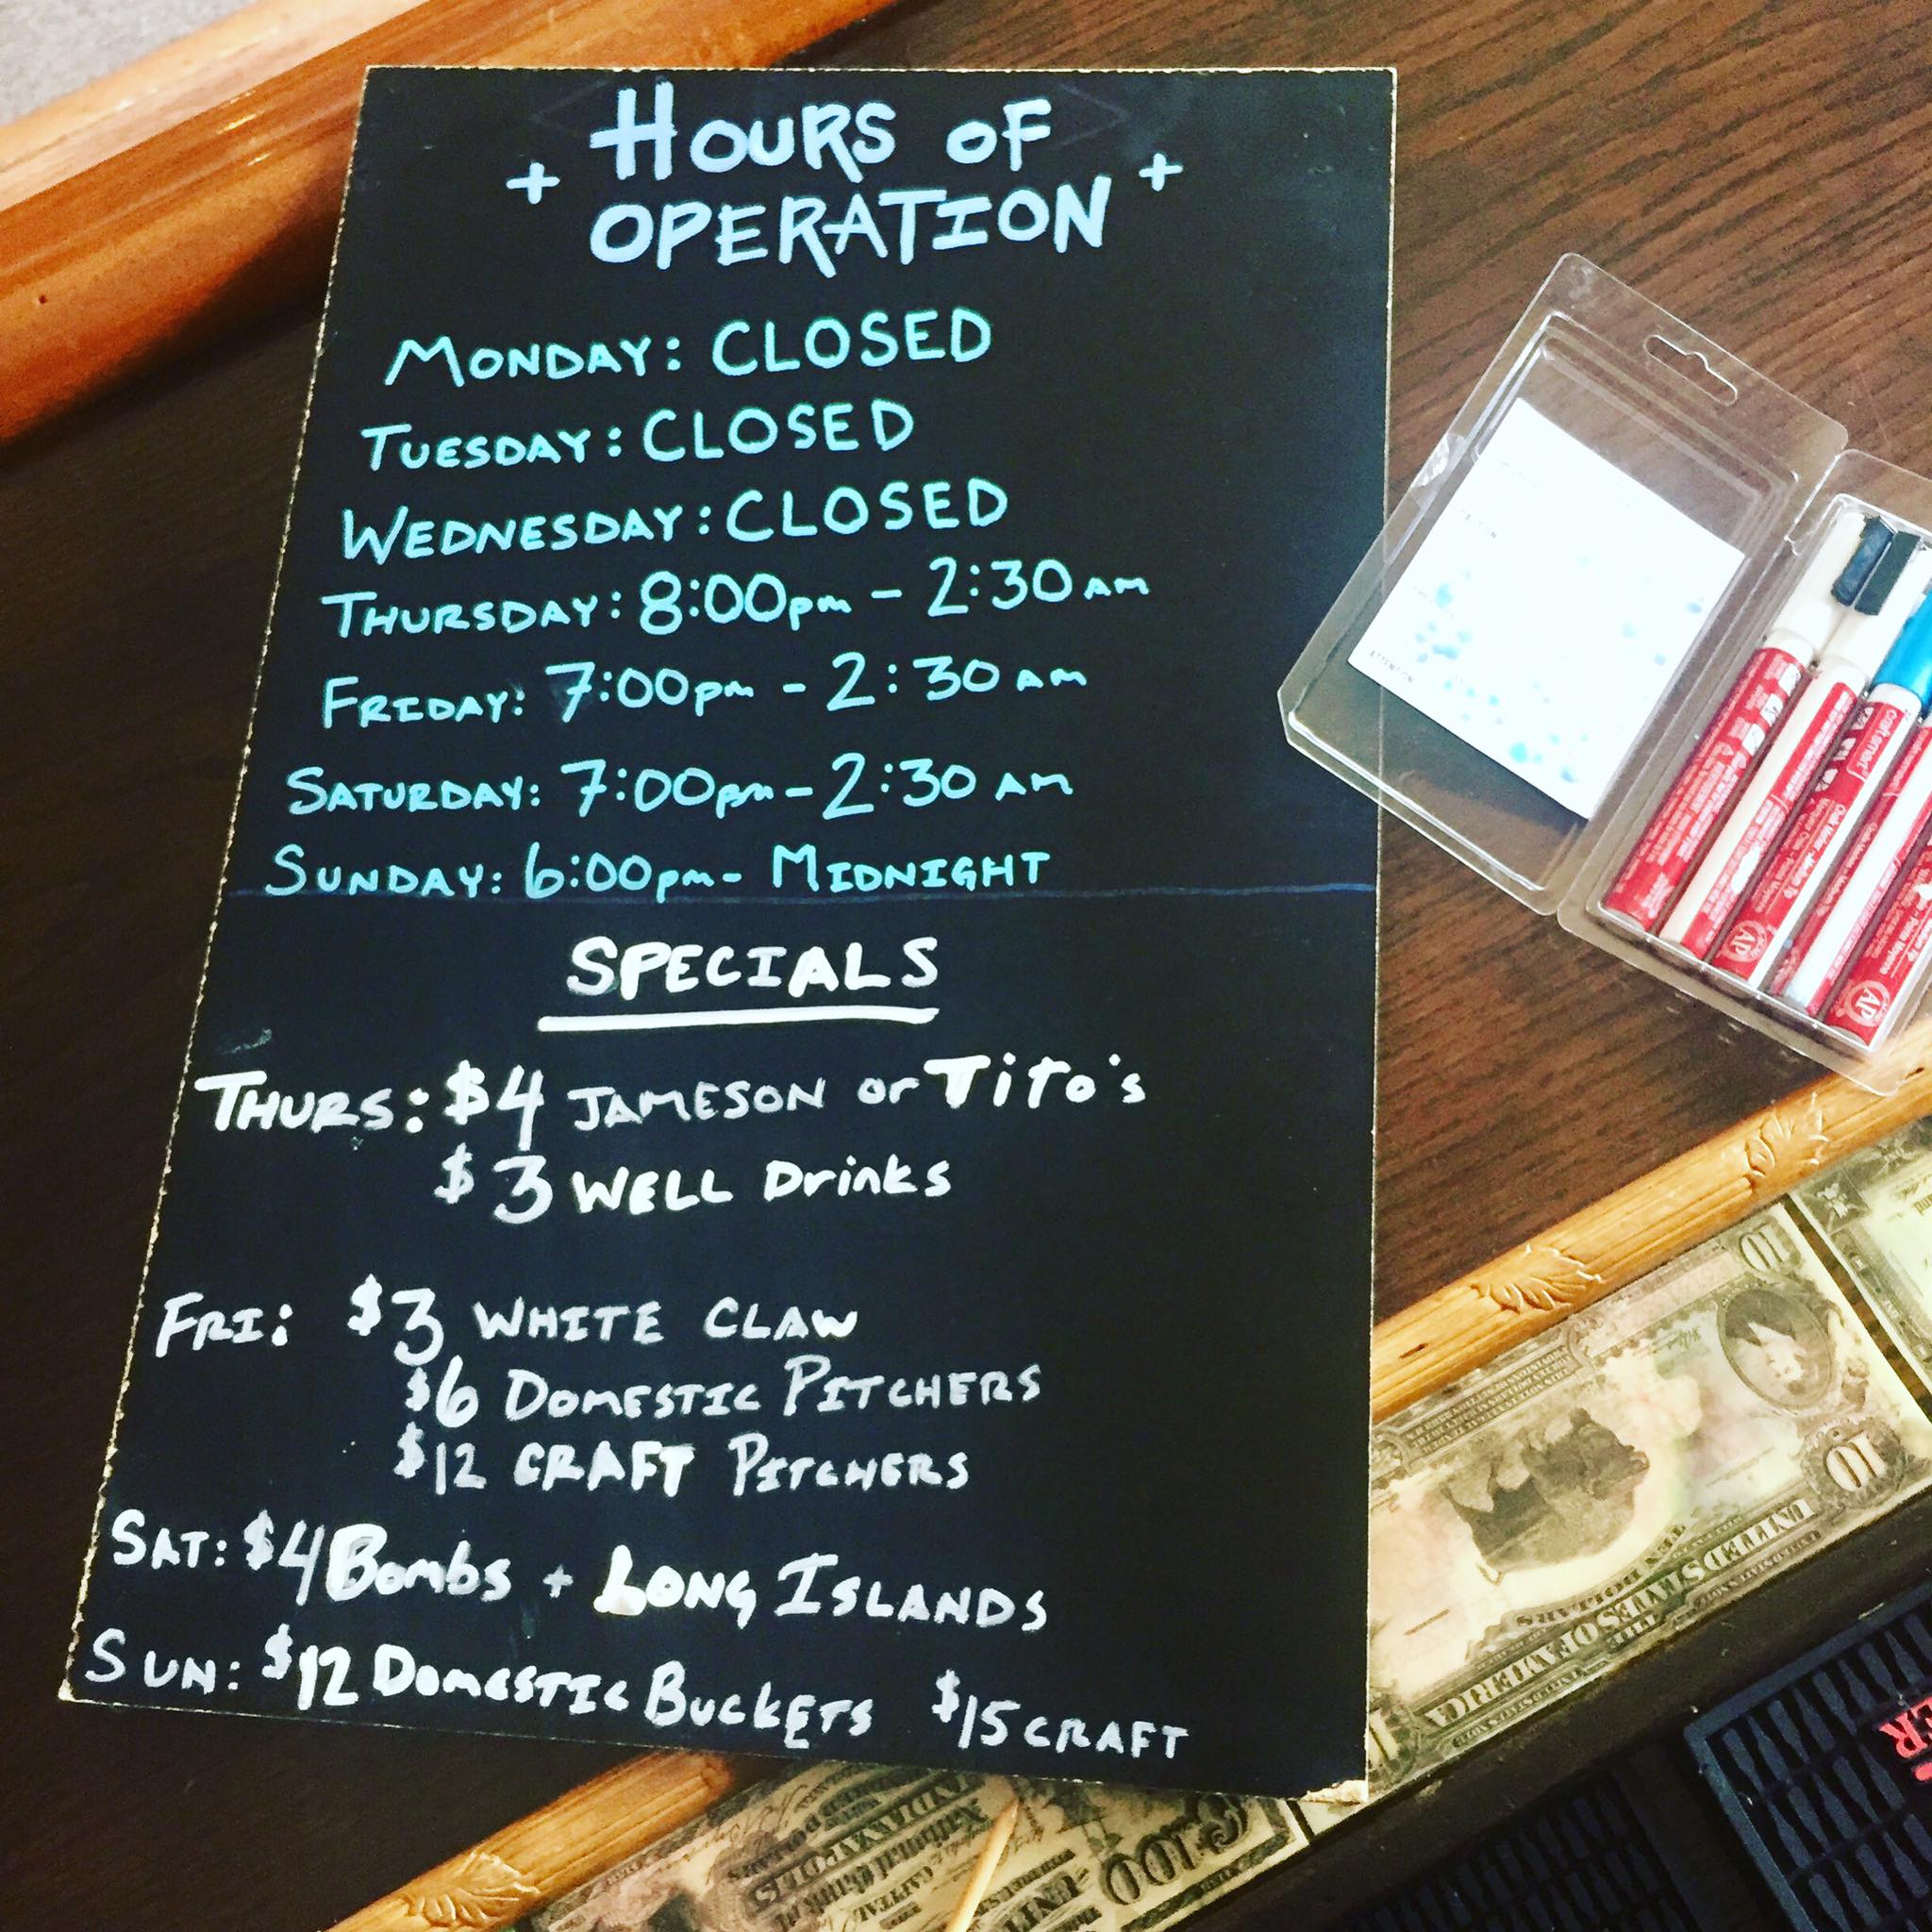 HOURS OF
+ OPERATION +
MONDAY: CLOSED
TUESDAY: CLOSED
WEDNESDAY: CLOSED
THURSDAY: 8:00pm - 2:30 AM
FRIDAY: 7:00pm - 2:30 AM
SATURDAY: 7:00pm - 2:30 AM
SUNDAY: 6:00pm - MIDNIGHT
SPECIALS
THURS: $4 JAMESON or Tito's
$3 WELL Drinks
FRI: $3 WHITE CLAW
$6 DOMESTIC PITCHERS
$12 CRAFT PITCHERS
SAT: $4 Bombs + LONG ISLANDS
SUN: $12 DOMESTIC BUCKETS $15 CRAFT
ATTENTION
AP
AP
10
10
THE
UNITED STATES OF AMERICA
TEN DOLLARS
National
INDIANAPOLIS
100